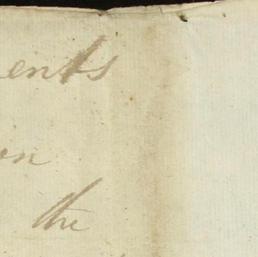 ents
on
the